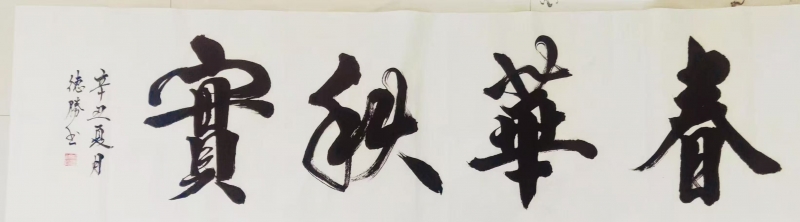 春華秋實
辛丑夏月
德勝書